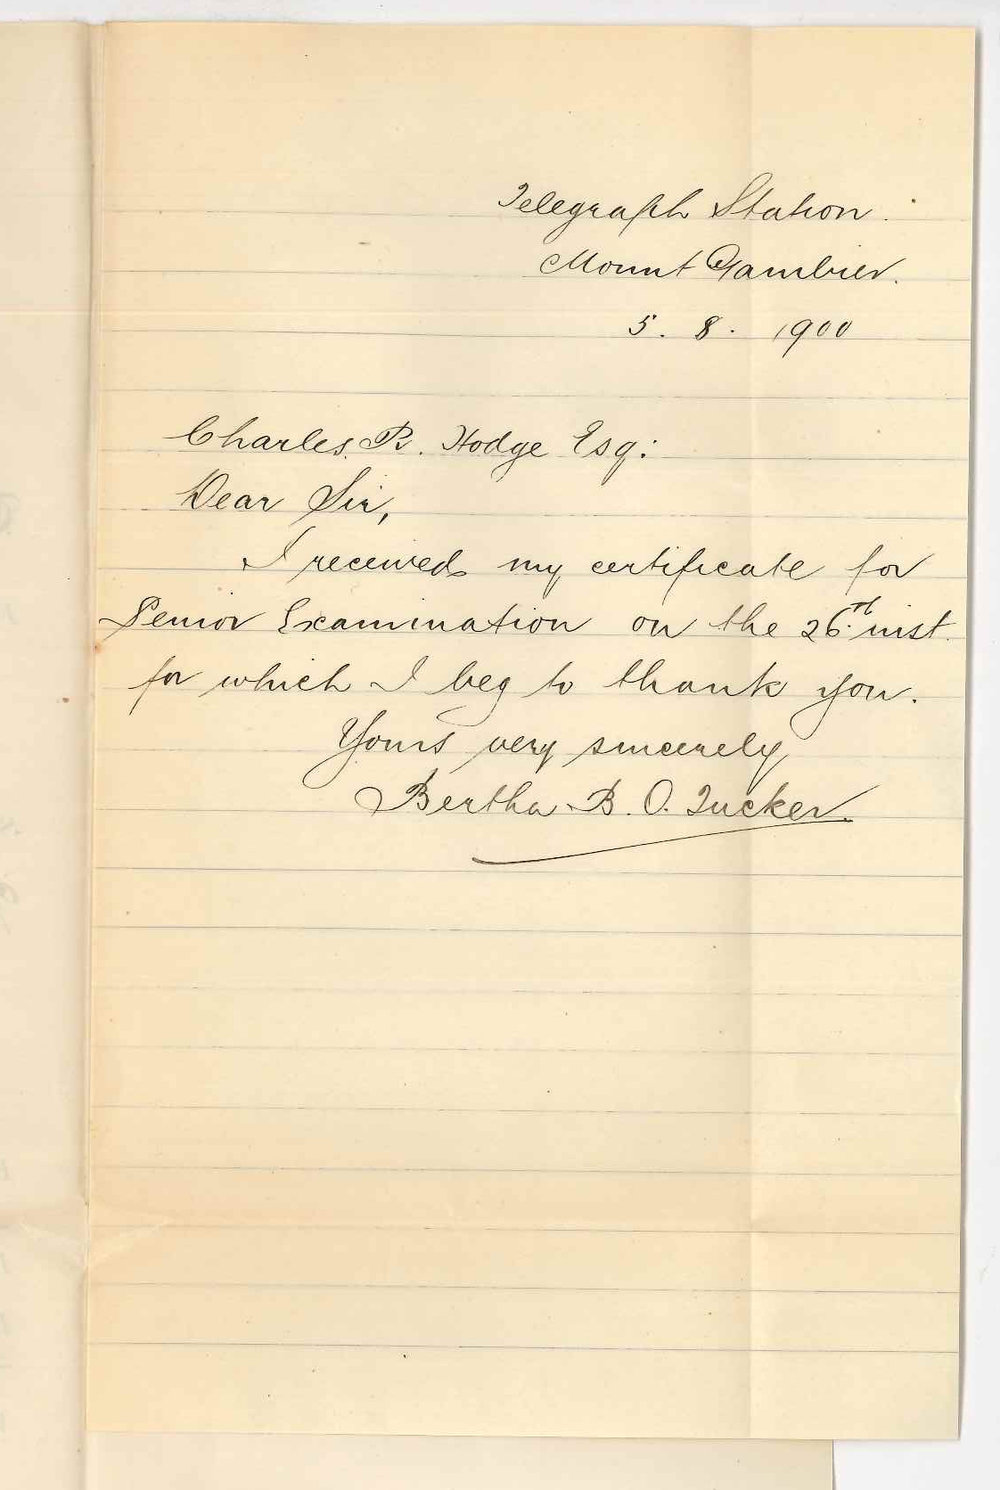 Telegraph Station.
Mount Gambier.
5. 8. 1900
Charles. R. Hodge Esq:
Dear Sir,
I received my certificate for
Senior Examination on the 26th. inst.
for which I beg to thank you.
Yours very sincerely
Bertha B. O. Tucker.